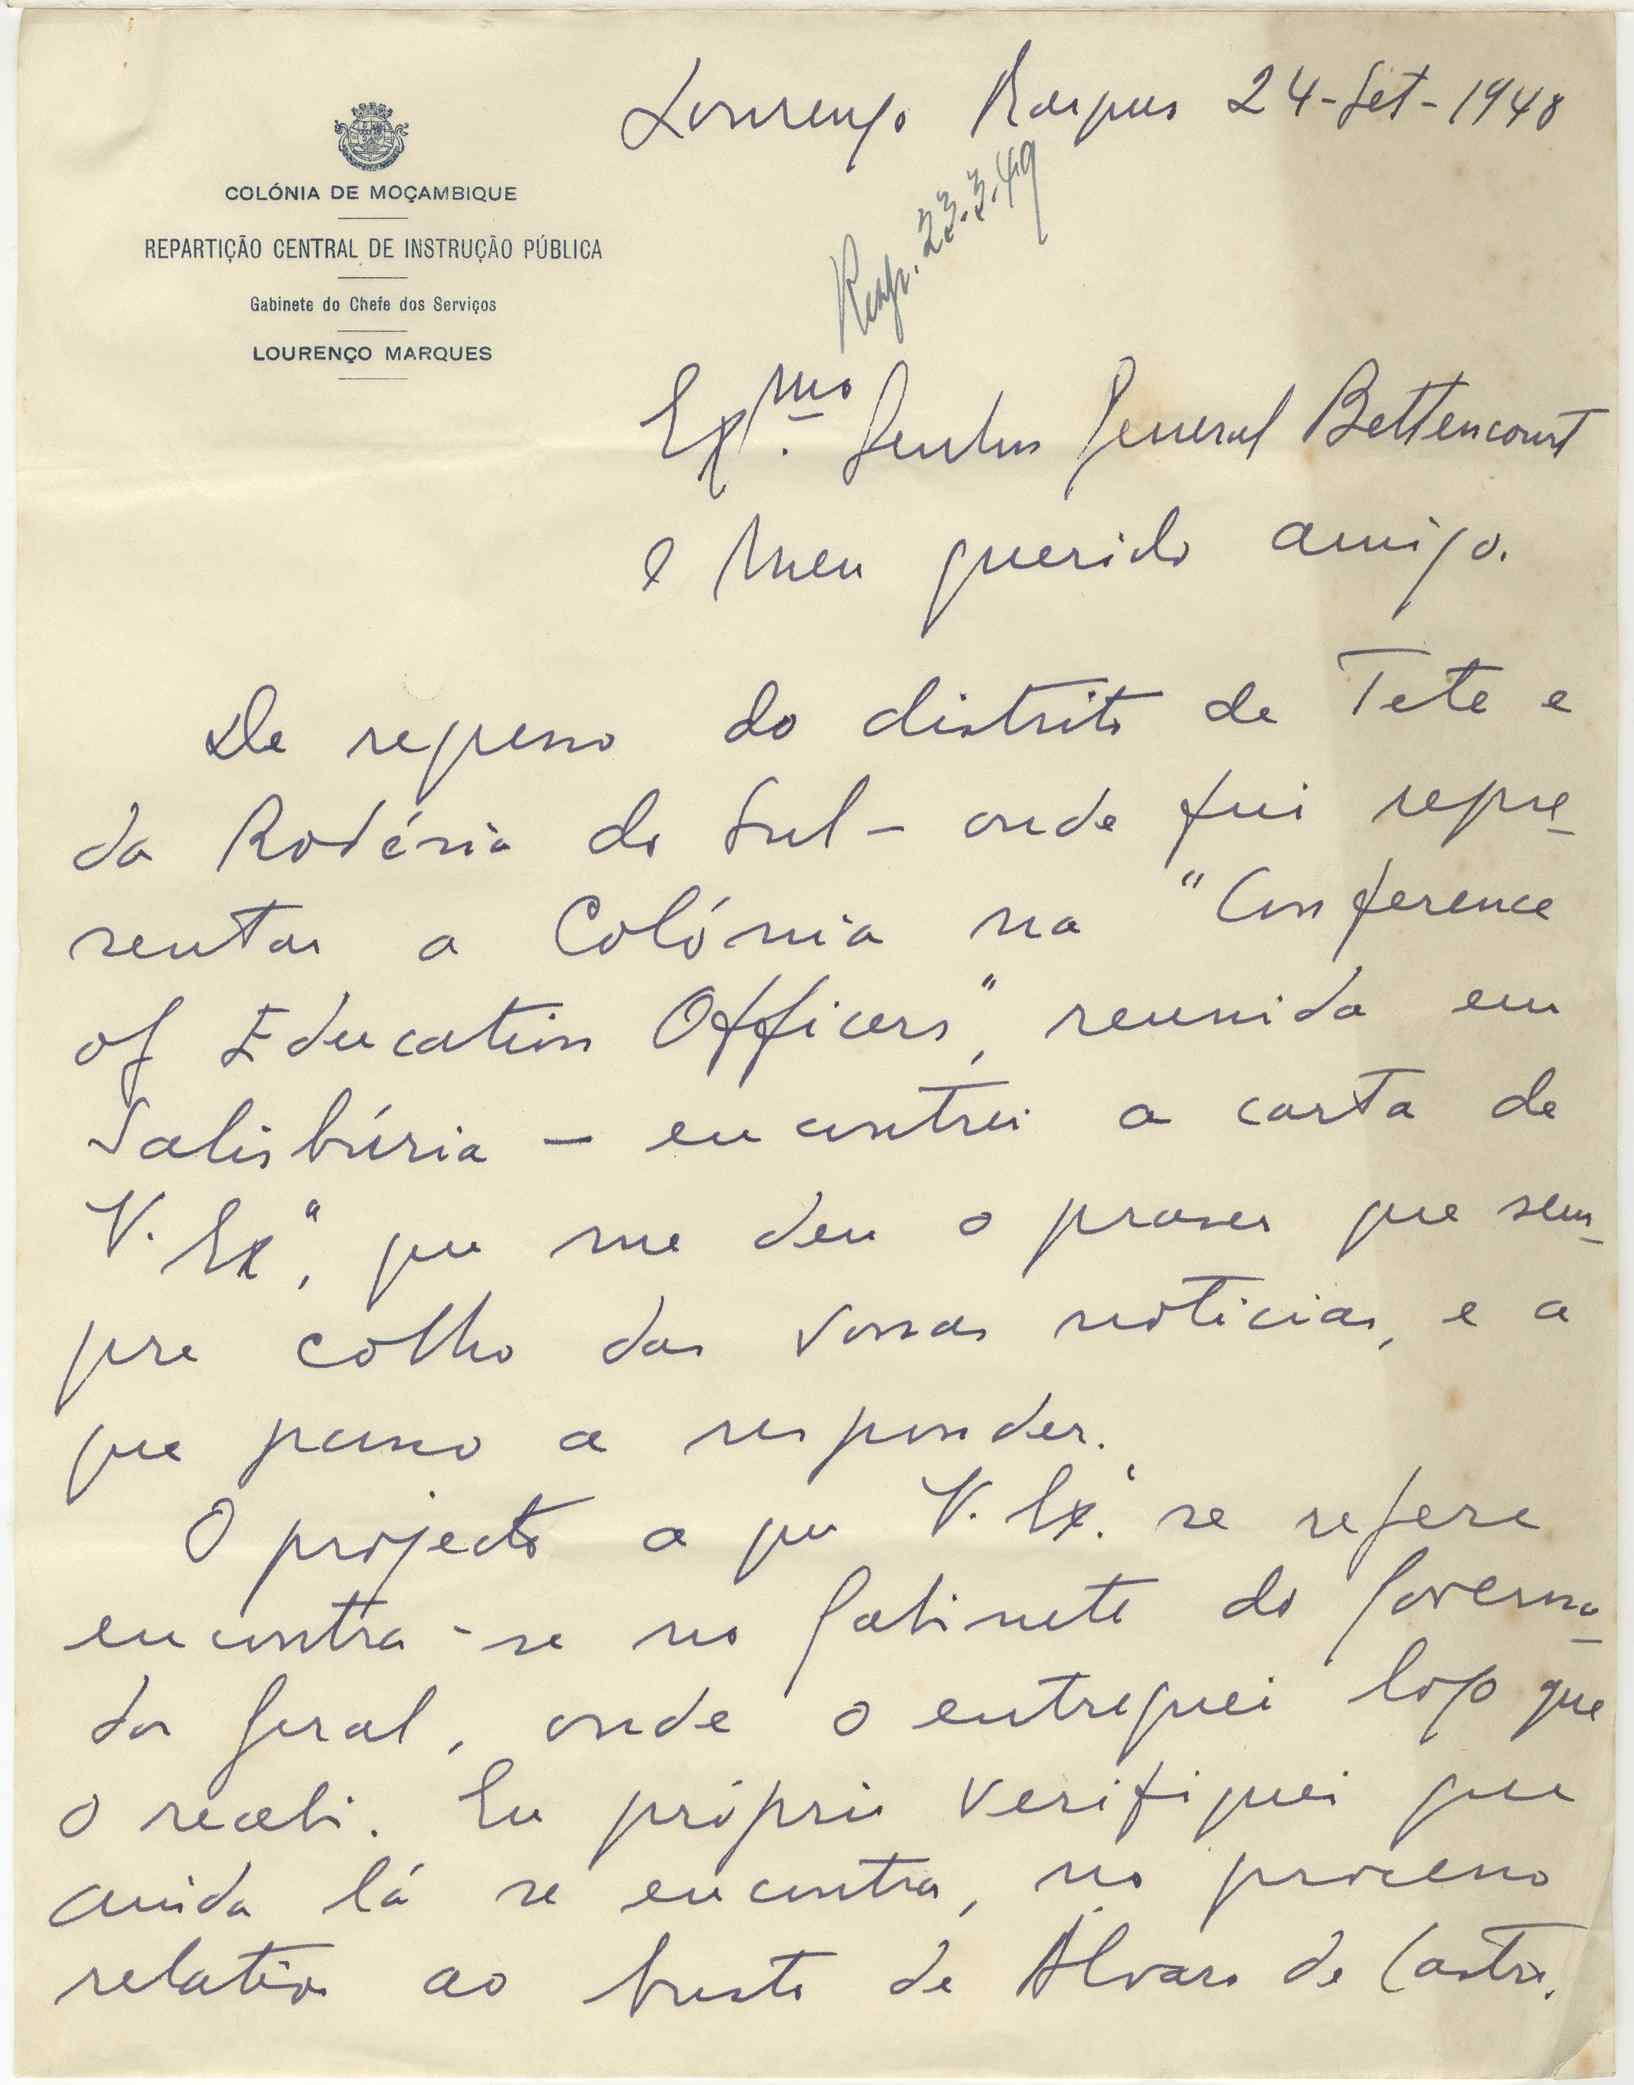 COLÓNIA DE MOÇAMBIQUE
REPARTIÇÃO CENTRAL DE INSTRUÇÃO PÚBLICA
Gabinete do Chefe dos Serviços
LOURENÇO MARQUES
Lourenço Marques 24-Set-1948
Resp. 23.3.49
Exmo. Senhor General Bettencourt
e meu querido amigo.
De regresso do distrito de Tete e
da Rodésia do Sul – onde fui repre-
sentar a Colónia na "Conference
of Education Officers", reunida em
Salisbúria – encontrei a carta de
V. Exª, que me deu o prazer que sem-
pre colho das vossas noticias, e a
que passo a responder.
O projecto a que V. Exª se refere
encontra-se no Gabinete do Governa-
dor Geral, onde o entreguei logo que
o recebi. Eu próprio verifiquei que
ainda lá se encontra, no processo
relativo ao busto de Alvaro de Castro.